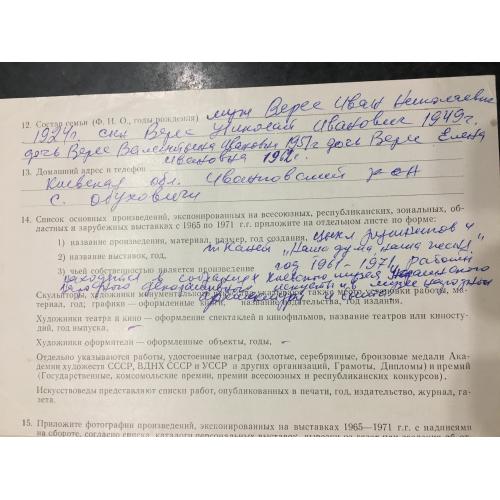 12. Состав семьи (Ф. И. О., годы рождения) муж Верес Иван Николаевич
1924г. сын Верес Николай Иванович 1949г.
дочь Верес Валентина Ивановна 1951г дочь Верес Елена
Ивановна 1962г.
13. Домашний адрес и телефон
Киевская обл. Иванковский р-он
с. Обуховичи
14. Список основных произведений, экспонированных на всесоюзных, республиканских, зональных, об-
ластных и зарубежных выставках с 1965 по 1971 г.г. приложите на отдельном листе по форме:
1) название произведения, материал, размер, год создания, цикл рушников и
2) название выставок, год, тканей „Наша дума наша песня"
3) чьей собственностью является произведение год 1961-1971, работы
находятся в собраниях киевского музея украинского
народного декоративного искусства и в музее народной
архитектуры и
Скульпторы, художники монументального
териал, год; графики — оформленные книги, издательства, год издания.
Художники театра и кино — оформление спектаклей и кинофильмов, название театров или киносту-
дий, год выпуска, —
Художники оформители — оформленные объекты, годы, —
Отдельно указываются работы, удостоенные наград (золотые, серебрянные, бронзовые медали Ака-
демии художеств СССР, ВДНХ СССР и УССР и других организаций, Грамоты, Дипломы) и премий
(Государственные, комсомольские премии, премии всесоюзных и республиканских конкурсов).
Искусствоведы представляют списки работ, опубликованных в печати, год, издательство, журнал, га-
зета.
15. Приложите фотографии произведений, экспонированных на выставках 1965—1971 г.г. с надписями
на обороте, согласно списка, каталоги персональных выставок,